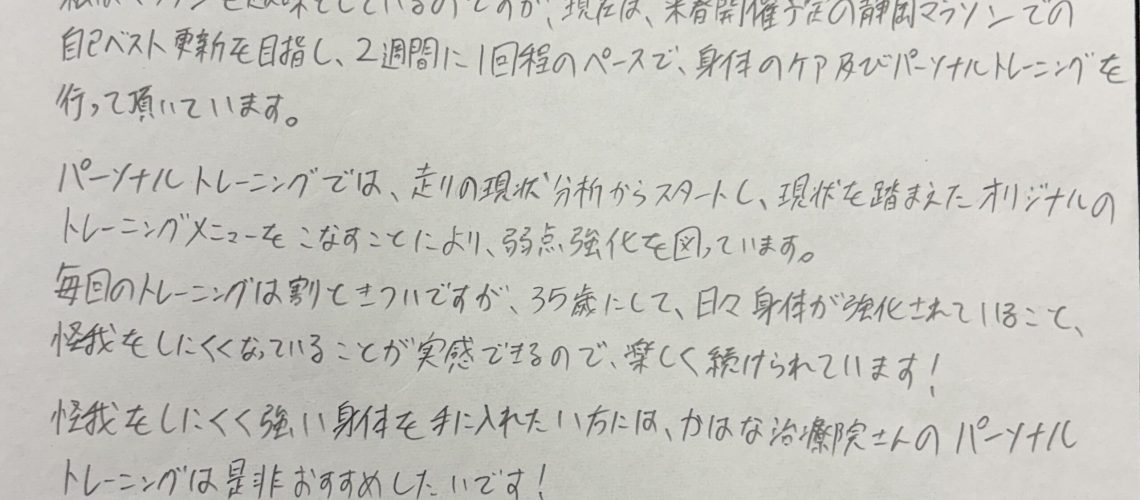 私はマラソンを趣味としているのですが、現在は、来春開催予定の静岡マラソンでの
自己ベスト更新を目指し、2週間に1回程のペースで、身体のケア及びパーソナルトレーニングを
行って頂いています。
パーソナルトレーニングでは、走りの現状分析からスタートし、現状を踏まえたオリジナルの
トレーニングメニューをこなすことにより、弱点強化を図っています。
毎回のトレーニングは割ときついですが、35歳にして、日々身体が強化されていること、
怪我をしにくくなっていることが実感できるので、楽しく続けられています!
怪我をしにくく強い身体を手に入れたい方には、かはな治療院さんのパーソナル
トレーニングは是非おすすめしたいです!